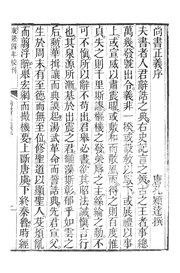 尚書正義序
孔穎達撰
夫書者人君辭誥之典右史記言之策古之王者事總
萬幾發號出令義非一揆或設教以馭下或展禮以事
上或宣威以肅震曜或敷和而散風雨得之則百度惟
貞失之則千里斯謬樞機之發榮辱之主絲綸之動不
可不慎所以辭不苟出君舉必書欲其昭法誡慎言行
也其泉源所漸基於出震之君黼藻斯彰郁乎如雲之
后勳華揖讓而典謨起湯武革命而誓誥興先君宣父
生於周末有至德而無至位修聖道以顯聖人芟煩亂
而翦浮辭舉宏綱而撮機要上斷唐虞下終秦魯時經
四年校刊